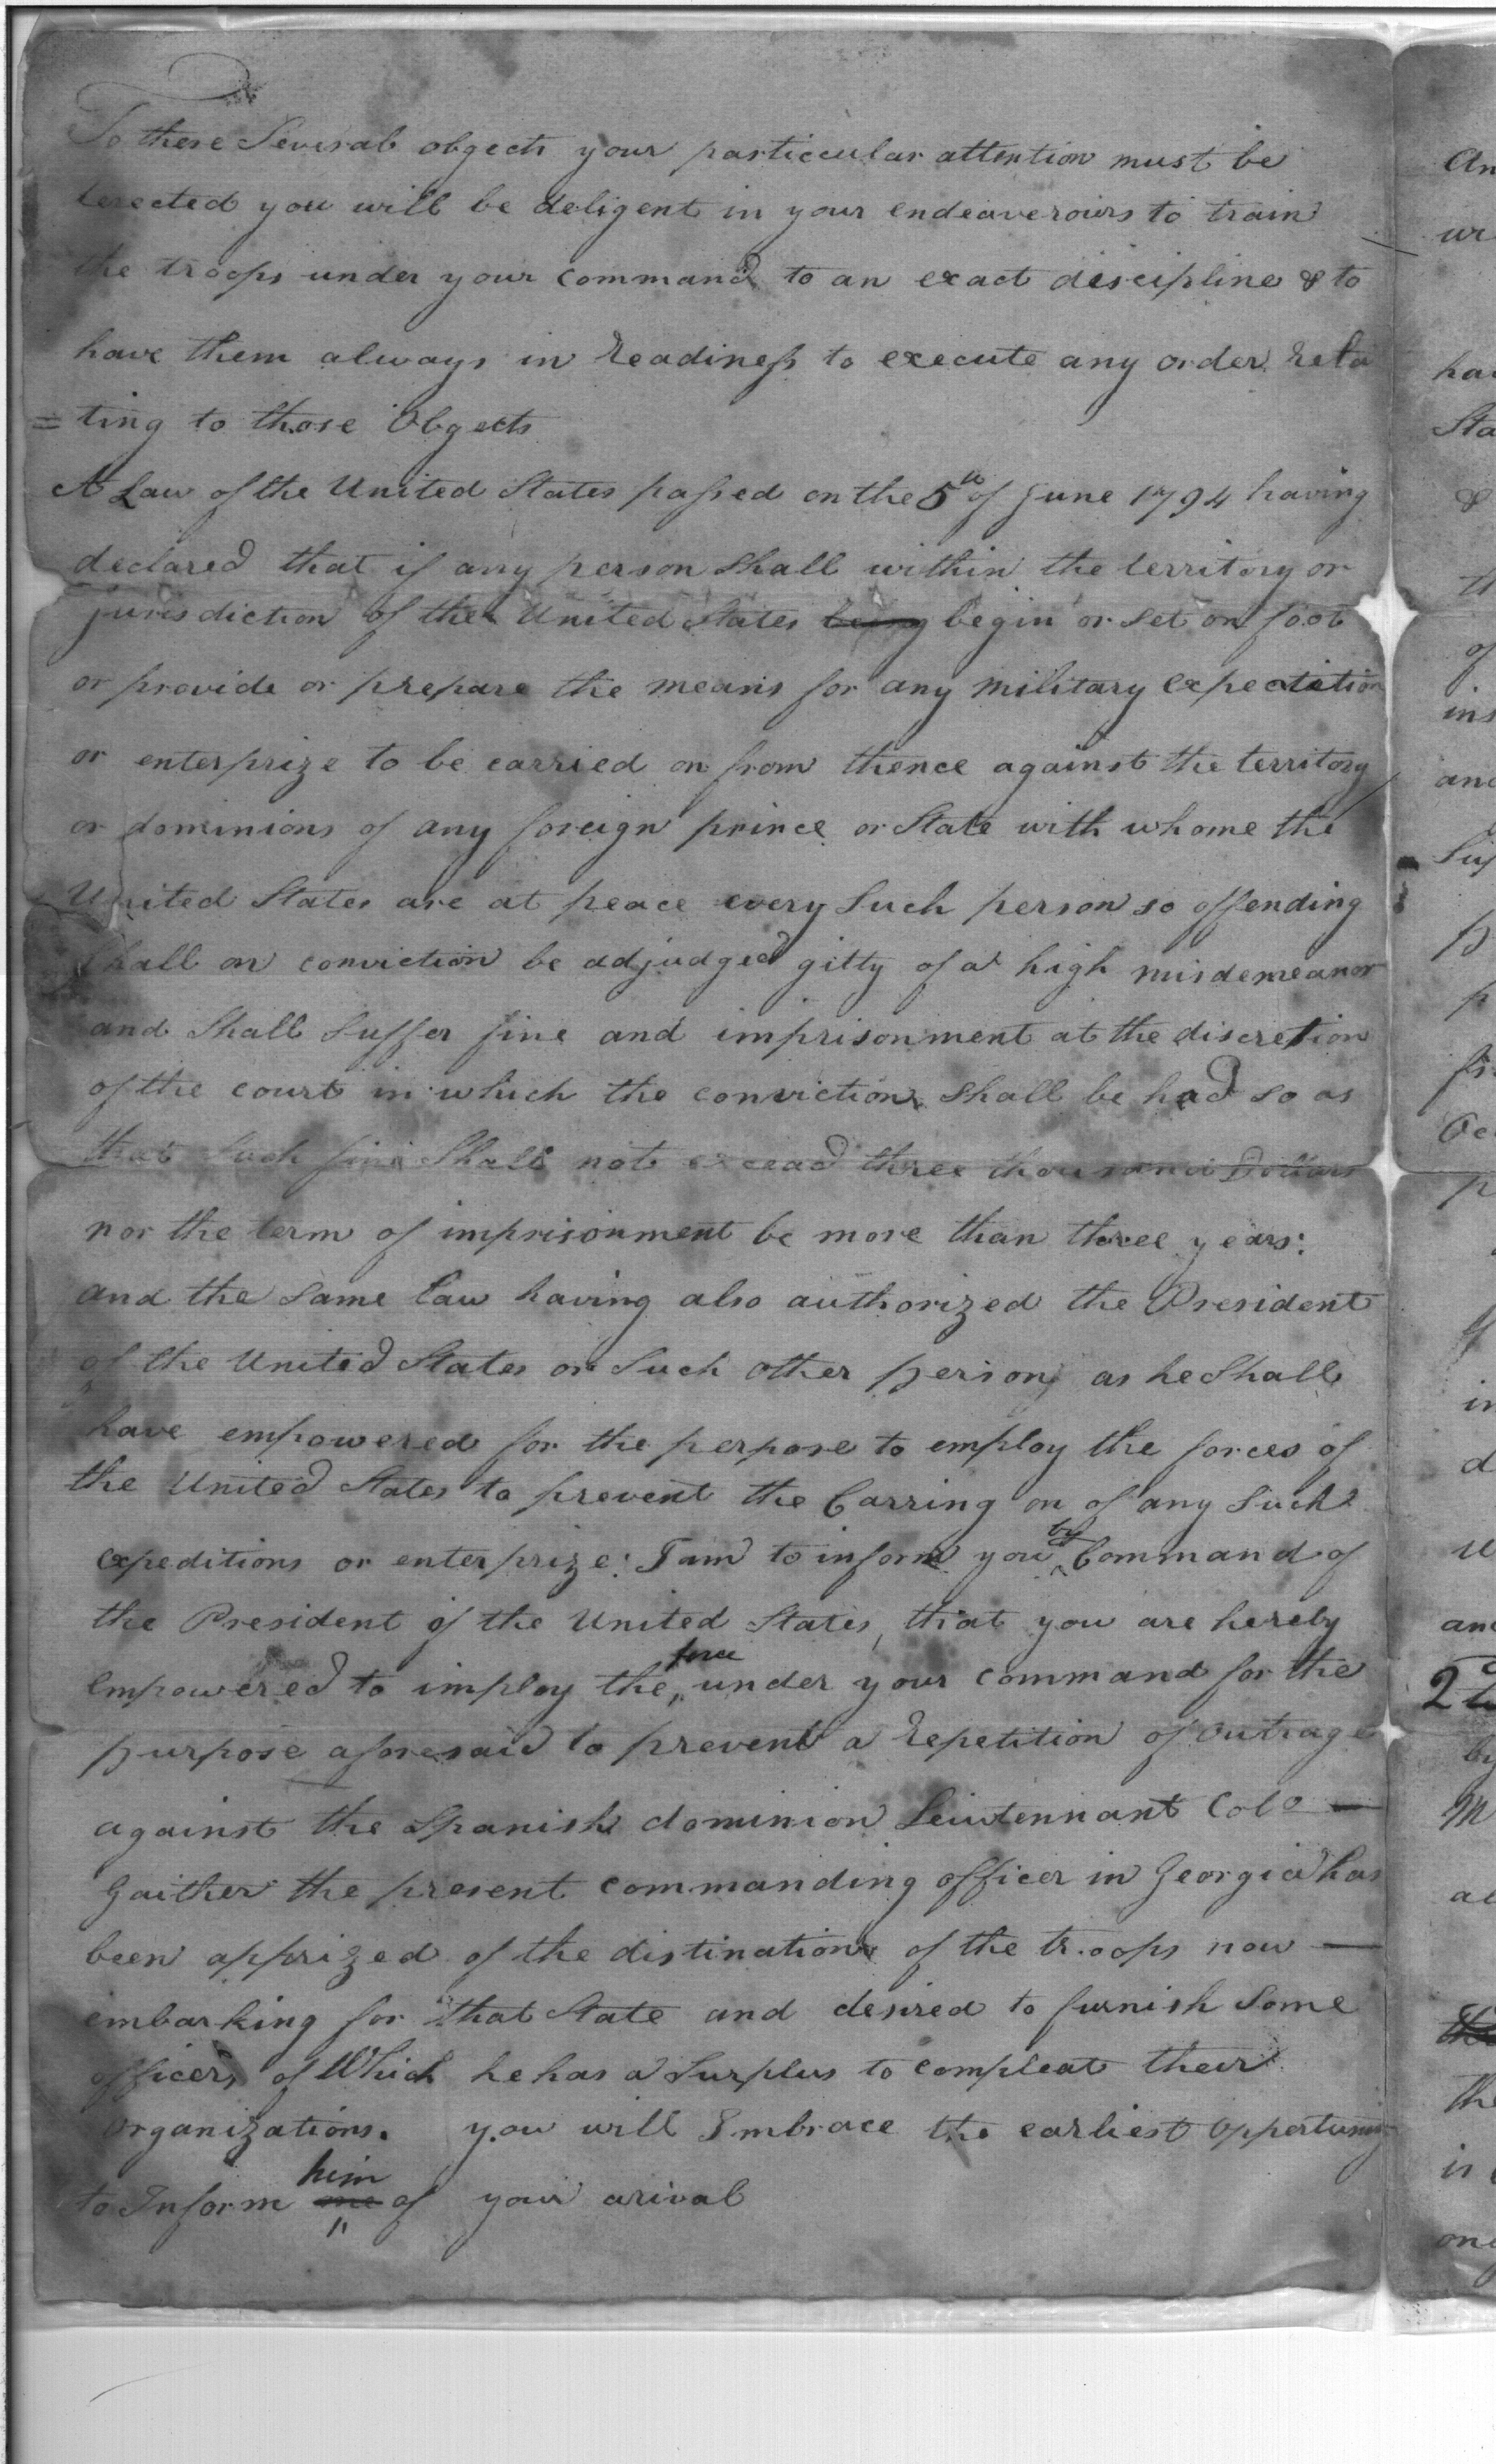 To these Several obgects your particcular attention must be
derected you will be deligent in your endeaveroiurs to train
the troops under your command to an exact discipline & to
have them always in readiness to execute any order rela
=ting to those Obgects
A Law of the United States passed on the 5th of June 1794 having
declared that if any person Shall within the territory or
jurisdiction of the United States being begin or set on foot
or provide or prepare the means for any military expectition
or enterprize to be carried on from thence against the territory
or dominions of any foreign prince or State with whome the
United States are at peace every Such person so offending
Shall on conviction be adjudged gitty of a high misdemeanor
and Shall Suffer fine and imprisonment at the discretion
of the court in which the conviction Shall be had so as
that Such fine Shall not excead three thousand Dollars
nor the term of imprisonment be more than three years:
and the Same law having also authorized the President
of the United States or Such other person as he Shall
have empowered for the perpose to employ the forces of
the United States to prevent the Carring on of any Such
expeditions or enterprize: I am to inform you by Command of
the President of the United States, that you are hereby
empowered to imploy the force under your command for the
purpose aforesaid to prevent a repetition of outrage
against the Spanish dominion Leiutennant Colo —
Gaither the present commanding officer in Georgia has
been apprized of the distination of the troops now —
embarking for that State and desired to furnish Some
officers of Which he has a Surplus to compleat their
organizations. you will Embrace the earliest oppertuni
to Inform me him of your arival